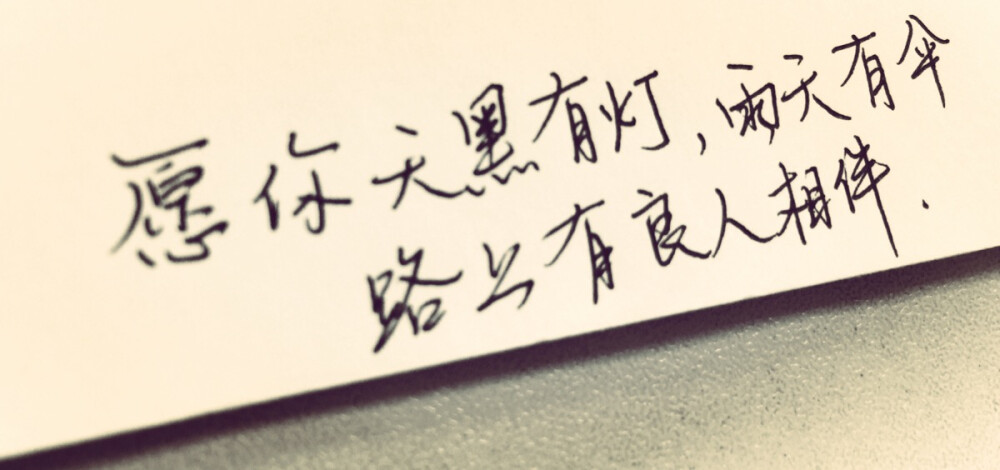 愿你天黑有灯,雨天有伞
路上有良人相伴.